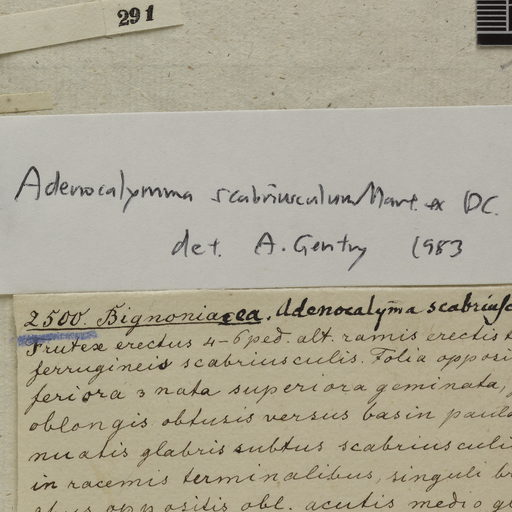 291
Adenocalymma scabriusculum Mart. ex DC.
det. A. Gentry 1983
2500. Bignoniacea. Adenocalym̄a scabriusc
Frutex erectus 4-6 ped. alt. ramis erectis t
ferrugineis scabriusculis. Folia opposi
feriora 3 nata superiora geminata,
oblongis obtusis versus basin paulo
nuatis glabris subtus scabriusculi
in racemis terminalibus, singuli br
oppositis obl. acutis medio g